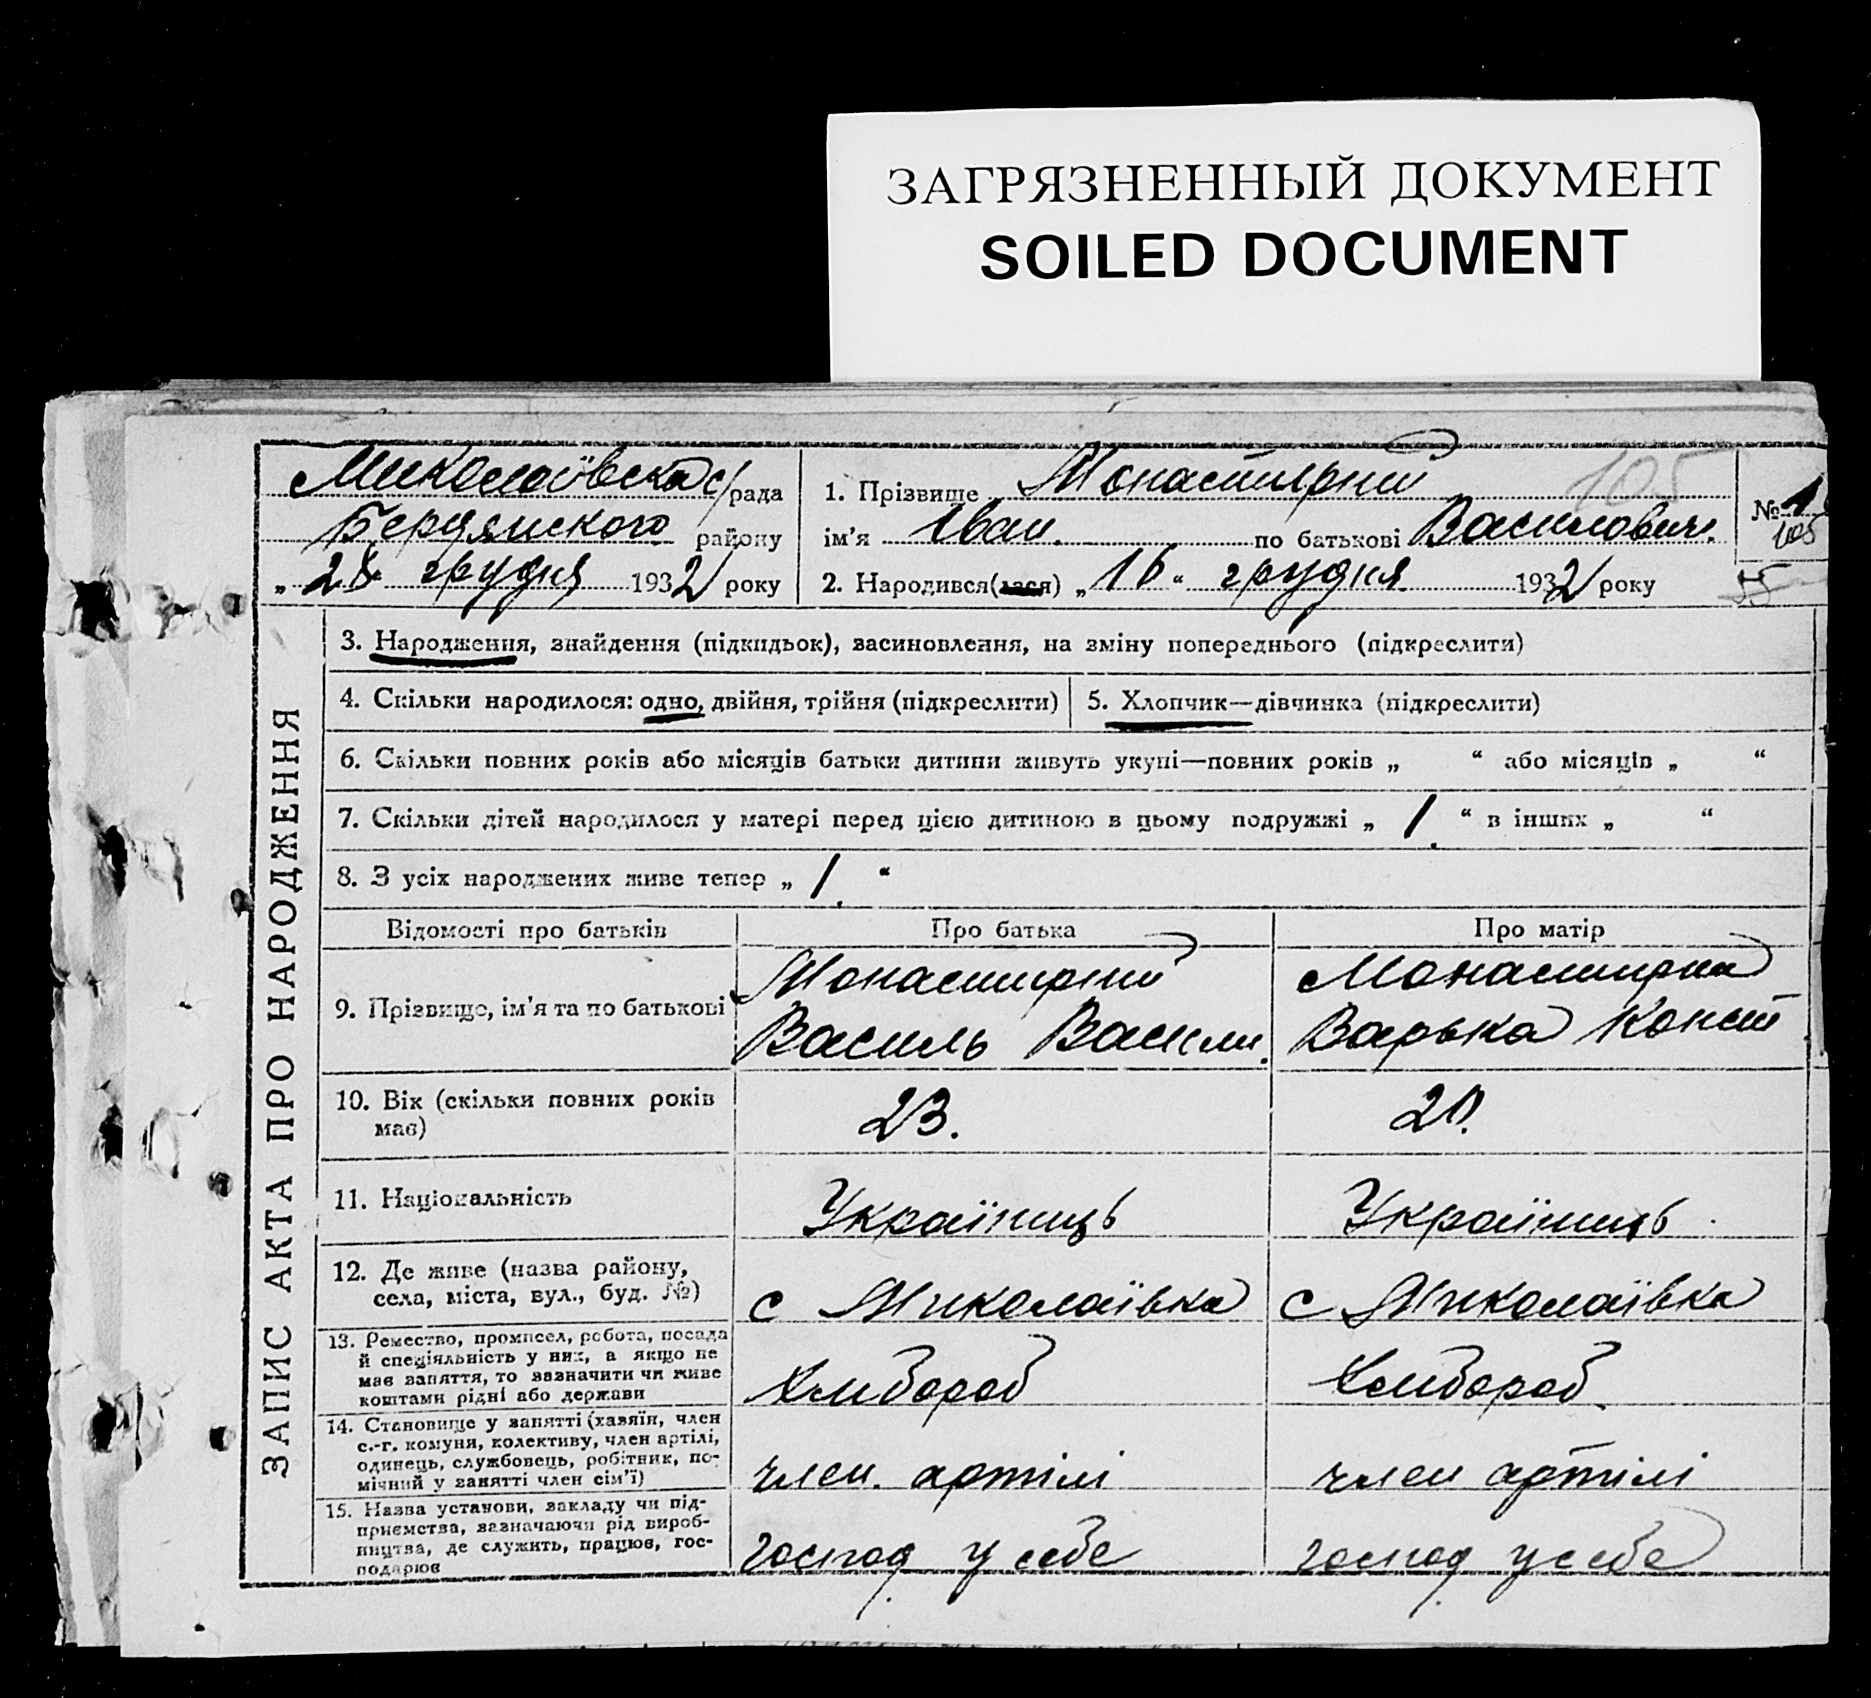 ЗАГРЯЗНЕННЫЙ ДОКУМЕНТ
SOILED DOCUMENT
Миколаївска с/рада
Бердянского району
„28“ грудня 1932 року
1. Прізвище Монастирний
105
ім'я Іван. по батькові Василович.
2. Народився(лася) „16“ грудня 1932 року
№ 1
105
55
ЗАПИС АКТА ПРО НАРОДЖЕННЯ
3. Народження, знайдення (підкидьок), засиновлення, на зміну попереднього (підкреслити)
4. Скільки народилося: одно, двійня, трійня (підкреслити)
5. Хлопчик—дівчинка (підкреслити)
6. Скільки повних років або місяців батьки дитини живуть укупі—повних років „ “ або місяців „ “
7. Скільки дітей народилося у матері перед цією дитиною в цьому подружжі „ 1. “ в інших „ “
8. З усіх народжених живе тепер „ 1. “
Відомості про батьків Про батька Про матір
9. Прізвище, ім'я та по батькові
Монастирний
Василь Васили.
Монастирна
Варька Конст
10. Вік (скільки повних років
має)
23.
20.
11. Національність Україниць Україниць
12. Де живе (назва району,
села, міста, вул., буд. №)
с Миколаївка
с Миколаївка
13. Ремество, промисел, робота, посада
й спеціяльність у них, а якщо не
має заняття, то зазначити чи живе
коштами рідні або держави
Хлибороб
Хлибороб
14. Становище у занятті (хазяїн, член
с.-г. комуни, колективу, член артілі,
одинець, службовець, робітник, по-
мічний у занятті член сім'ї)
член. артілі
член артілі
15. Назва установи, закладу чи під-
приємства, зазначаючи рід вироб-
ництва, де служить, працює, гос-
подарює
господ у себе
господ у себе